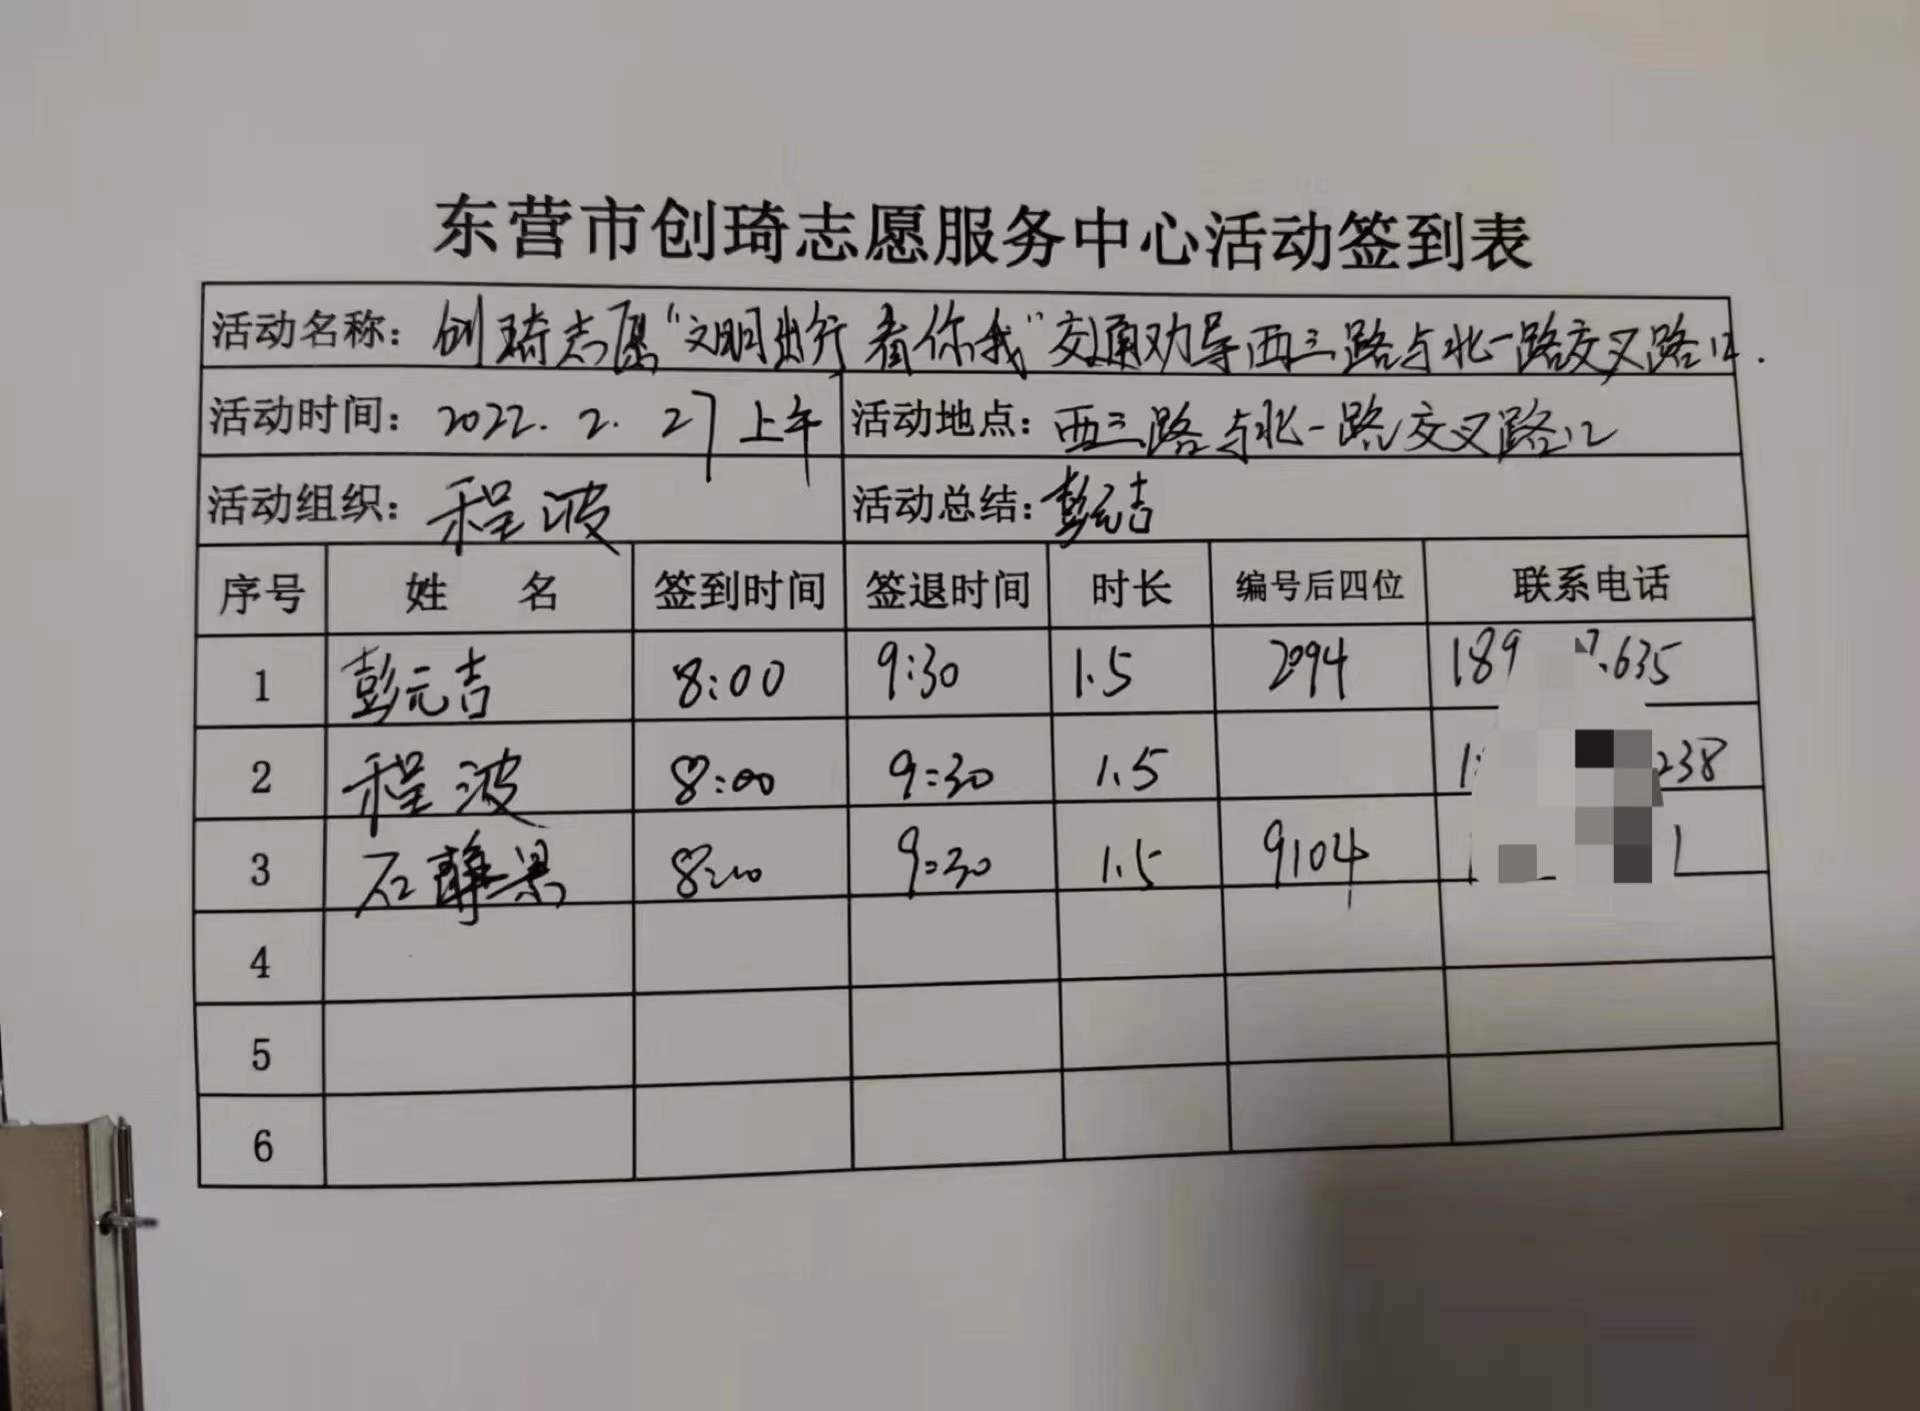 东营市创琦志愿服务中心活动签到表
活动名称：创琦志愿“文明出行 看你我”交通劝导西三路与北一路交叉路口.
活动时间：2022.2.27上午 活动地点：西三路与北一路交叉路口
活动组织：程波 活动总结：彭元吉
序号 姓名 签到时间 签退时间 时长 编号后四位 联系电话
1 彭元吉 8:00 9:30 1.5 2094 189 635
2 程波 8:00 9:30 1.5 238
3 石静 8:00 9:30 1.5 9104
4
5
6